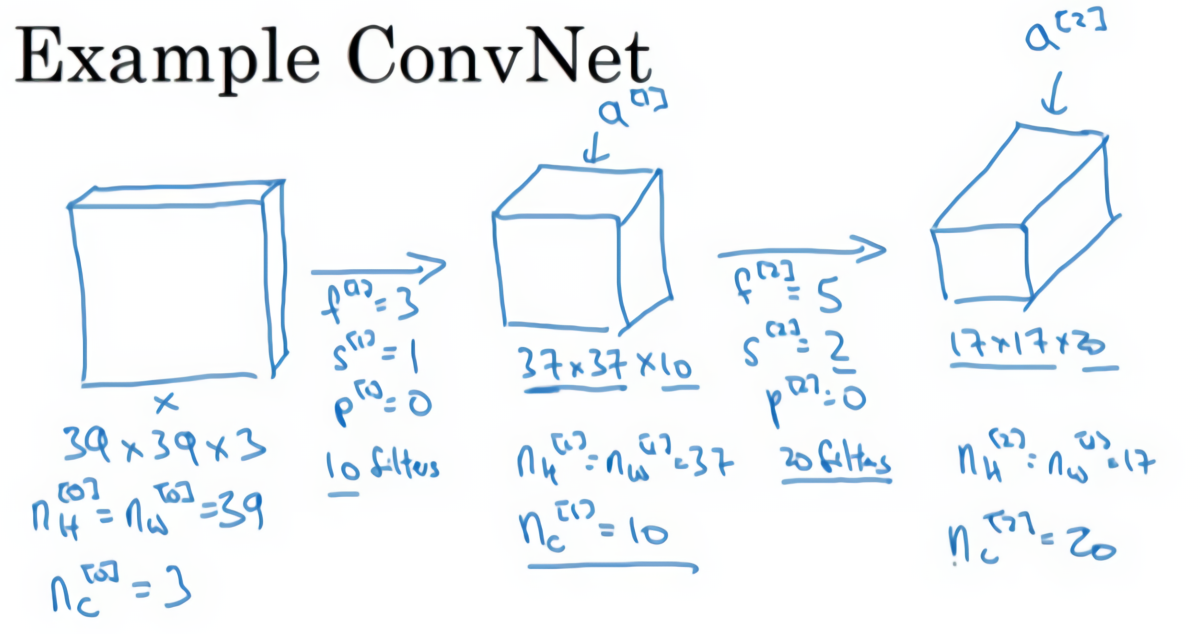 Example ConvNet
a[1]
a[2]
x
39 x 39 x 3
n_H[0] = n_W[0] = 39
n_C[0] = 3
f[1] = 3
s[1] = 1
p[1] = 0
10 filters
37 x 37 x 10
n_H[1] = n_W[1] = 37
n_C[1] = 10
f[2] = 5
s[2] = 2
p[2] = 0
20 filters
17 x 17 x 20
n_H[2] = n_W[2] = 17
n_C[2] = 20